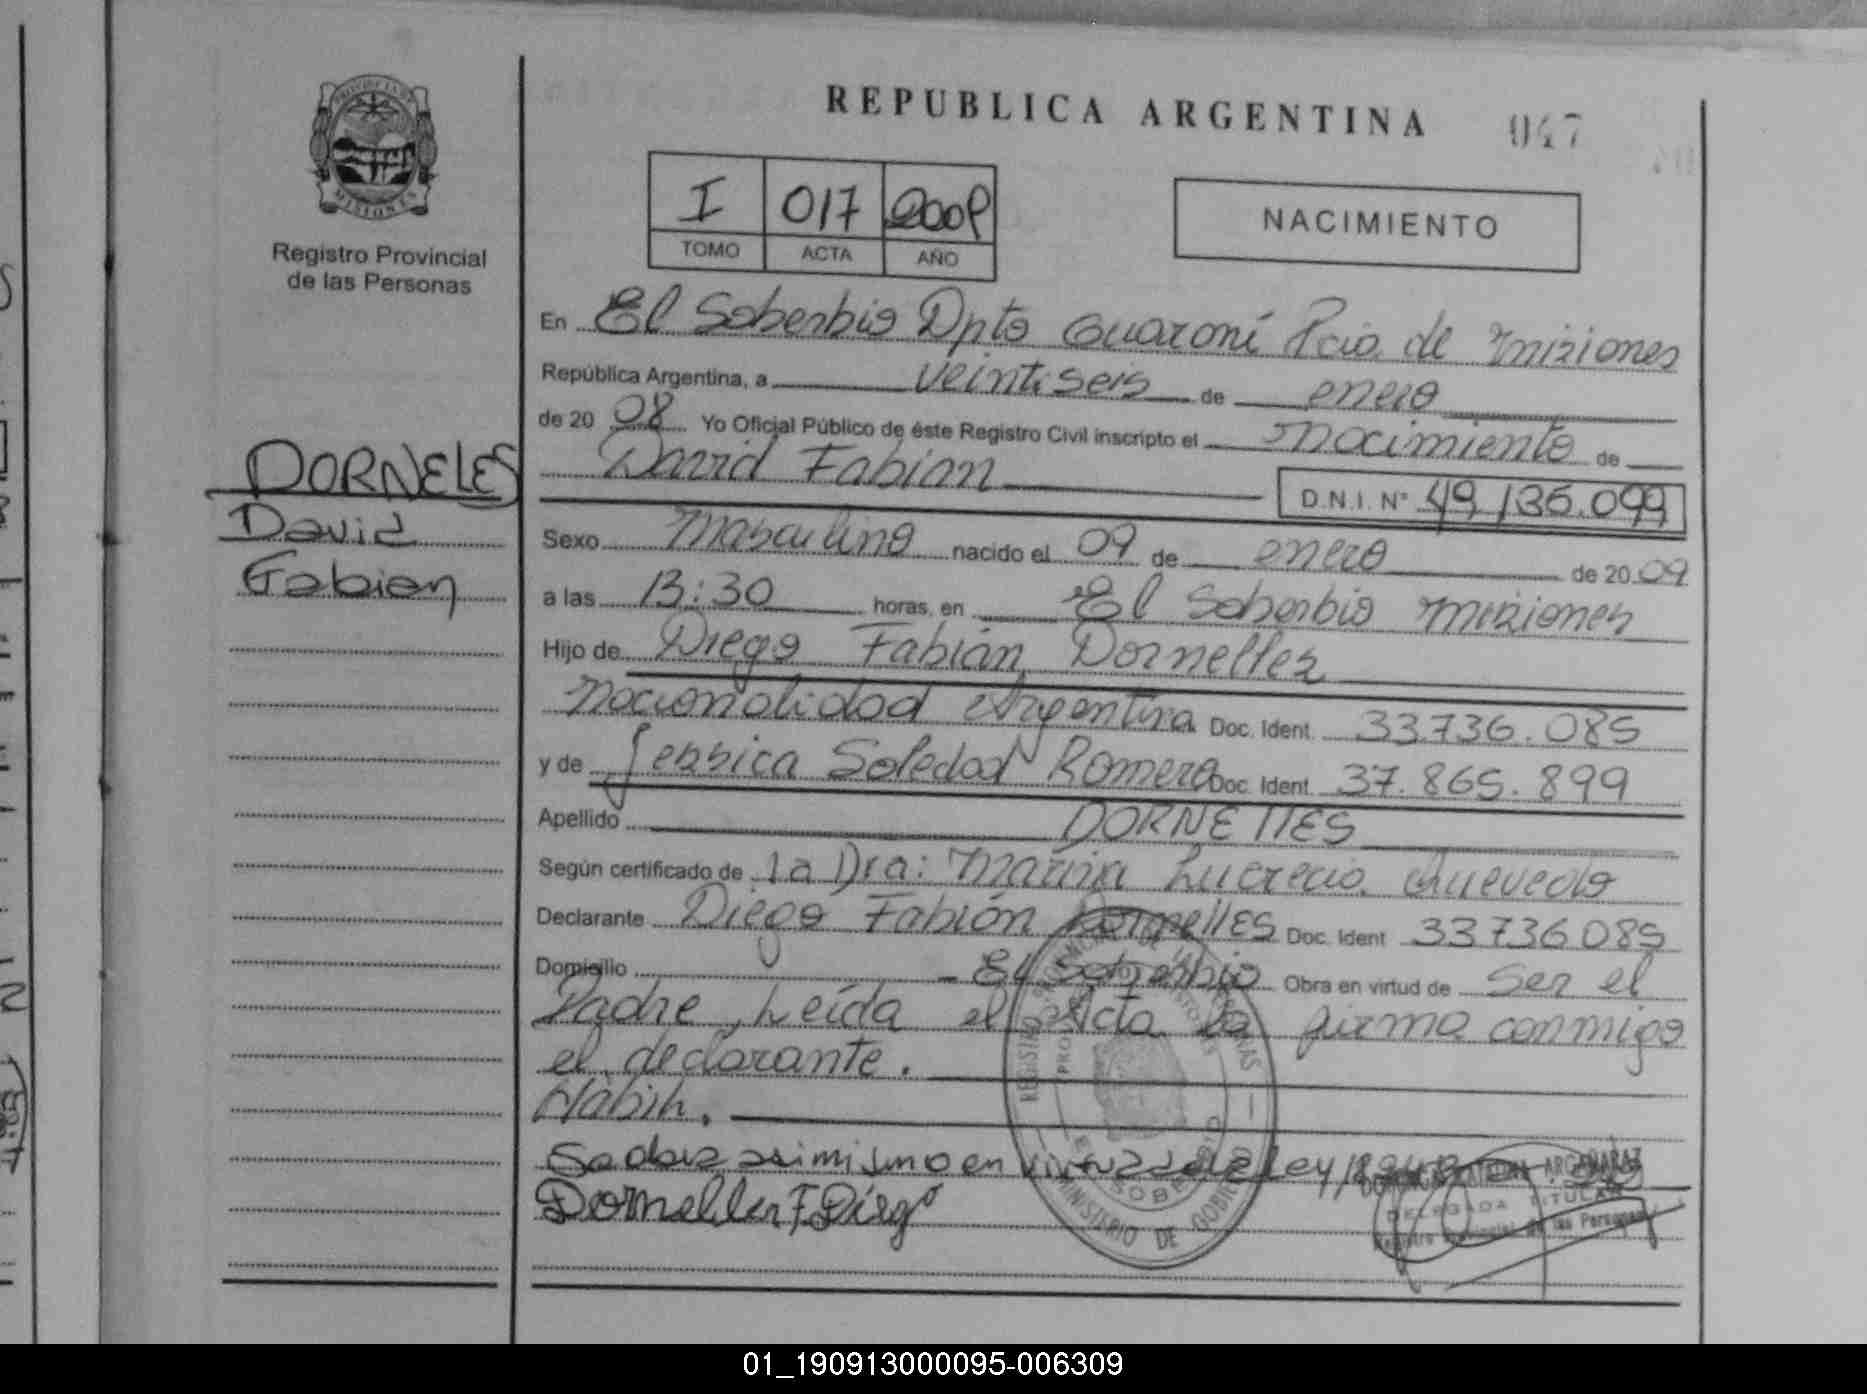 REPUBLICA ARGENTINA
047
PROVINCIA DE
MISIONES
Registro Provincial
de las Personas
I 017 2009
TOMO ACTA AÑO
NACIMIENTO
En El Soberbio Dpto Guaraní Pcia de Misiones
República Argentina, a veintiseis de enero
de 20 08 Yo Oficial Público de éste Registro Civil inscripto el Nacimiento de
David Fabian D.N.I. N° 49,136.099
DORNELES
David
Fabian
Sexo Masculino nacido el 09 de enero de 20 09
a las 13:30 horas, en El Soberbio Misiones
Hijo de Diego Fabián Dornelles
Nacionalidad Argentina Doc. Ident. 33.736.085
y de Jessica Soledad Romero Doc. Ident. 37.865.899
Apellido DORNELLES
Según certificado de la Dra: Marina Lucrecia Quevedo
Declarante Diego Fabión Dornelles Doc. Ident 33736085
Domicilio El Soberbio Obra en virtud de ser el
Padre, Leída el Acta la firma conmigo
el declarante.
en virtud de la Ley
Dornelles F. Diego
ARGAÑARAZ
DELEGADA TITULAR
Registro Provincial de las Personas
MINISTERIO DE GOBIERNO
EL SOBERBIO
01_190913000095-006309